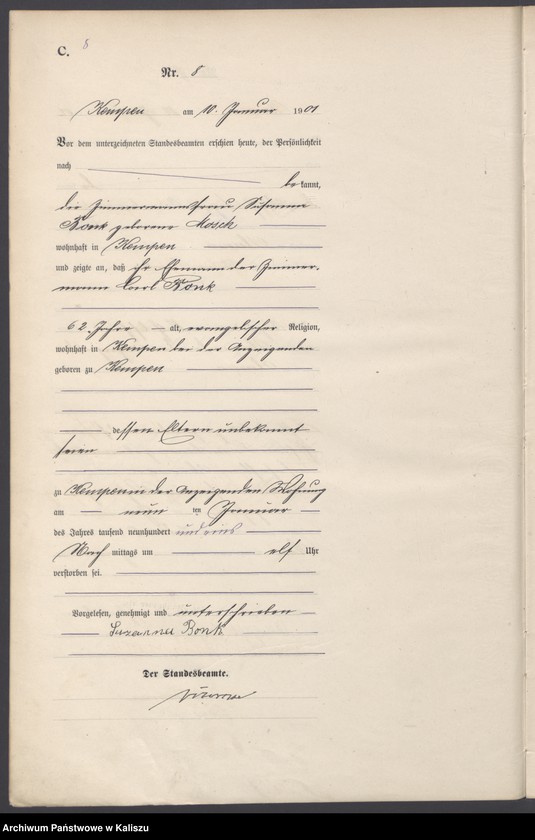 C. 8
Nr. 8
Kempen am 10. Januar 1901
Vor dem unterzeichneten Standesbeamten erschien heute, der Persönlichkeit
nach
bekannt,
die Zimmermannsfrau Susanna
Bonk geborene Mosch
wohnhaft in Kempen
und zeigte an, daß ihr Ehemann der Zimmer-
mann Carl Bonk
62 Jahre alt, evangelischer Religion,
wohnhaft in Kempen bei der Anzeigenden
geboren zu Kempen
dessen Eltern unbekannt
seien
zu Kempen in der Anzeigenden Wohnung
am neun ten Januar
des Jahres tausend neunhundert und eins
Nach mittags um elf Uhr
verstorben sei.
Vorgelesen, genehmigt und unterschrieben
Suzanna Bonk
Der Standesbeamte.
Archiwum Państwowe w Kaliszu